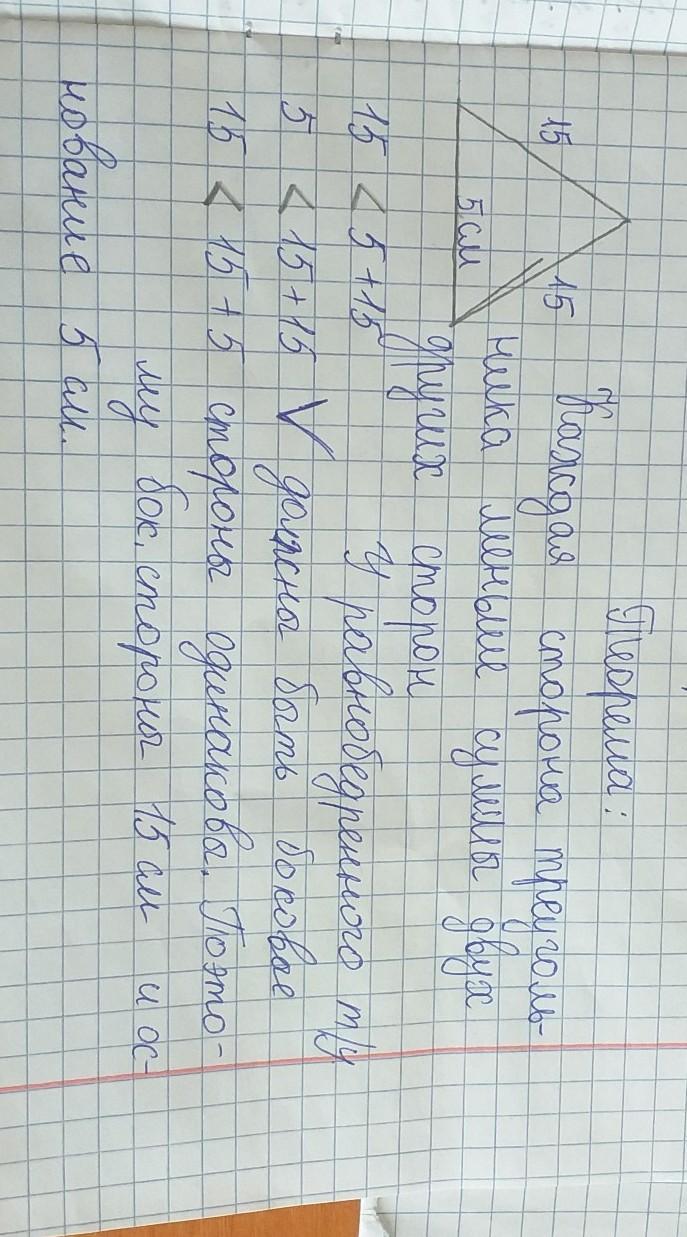 Теорема:
15 15 Каждая сторона треуголь-
5 см ника меньше суммы двух
других сторон
15 < 5 + 15 У равнобедренного т/у
5 < 15 + 15 V должны быть боковые
15 < 15 + 5 стороны одинаковы. Поэто-
му бок. стороны 15 см и ос-
нование 5 см.